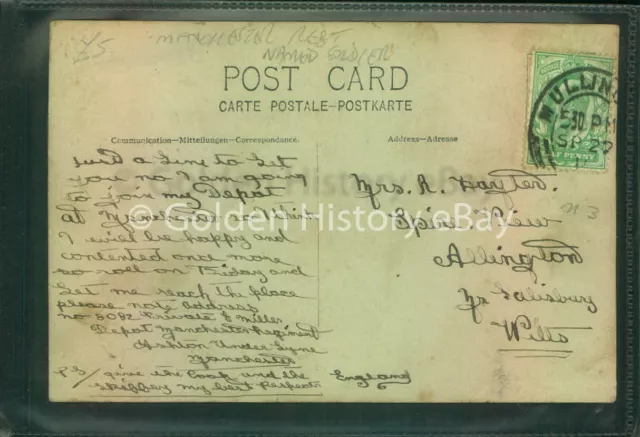 £5
MANCHESTER REGT
NAMED SOLDIER
POST CARD
CARTE POSTALE–POSTKARTE
Communication–Mitteilungen–Correspondance.
Address–Adresse
MULLIN
530 PM
SP 22
Just a Line to Let
you no I am going
to join my Depot
at Manchester so I think
I will be happy and
contented once more
so roll on Friday and
Let me reach the place
please note address
no Private E Miller
Depot Manchester Regiment
Ashton Under Lyne
Manchester
England
PS/ give the Cook and the
my best respects
Mrs. R. Hayter.
View
Allington
Nr Salisbury
Wilts
© Golden History eBay
© Golden History eBay